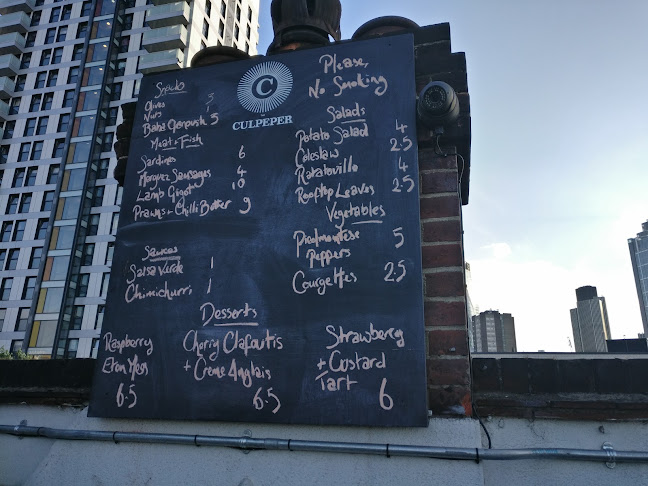 Snacks
Olives 3
Nuts
Baba Ganoush 5
Meat + Fish
Sardines 6
Merguez Sausages 4
Lamb Gigot 10
Prawns + Chilli Butter 9
Sauces
Salsa Verde 1
Chimichurri 1
C
THE
CULPEPER
Please,
No Smoking
Salads
Potato Salad 4
Coleslaw 2.5
Ratatouille 4
Rooftop Leaves 2.5
Vegetables
Piedmontese 5
Peppers
Courgettes 2.5
Desserts
Raspberry
Eton Mess
6.5
Cherry Clafoutis
+ Creme Anglais
6.5
Strawberry
+ Custard
Tart 6